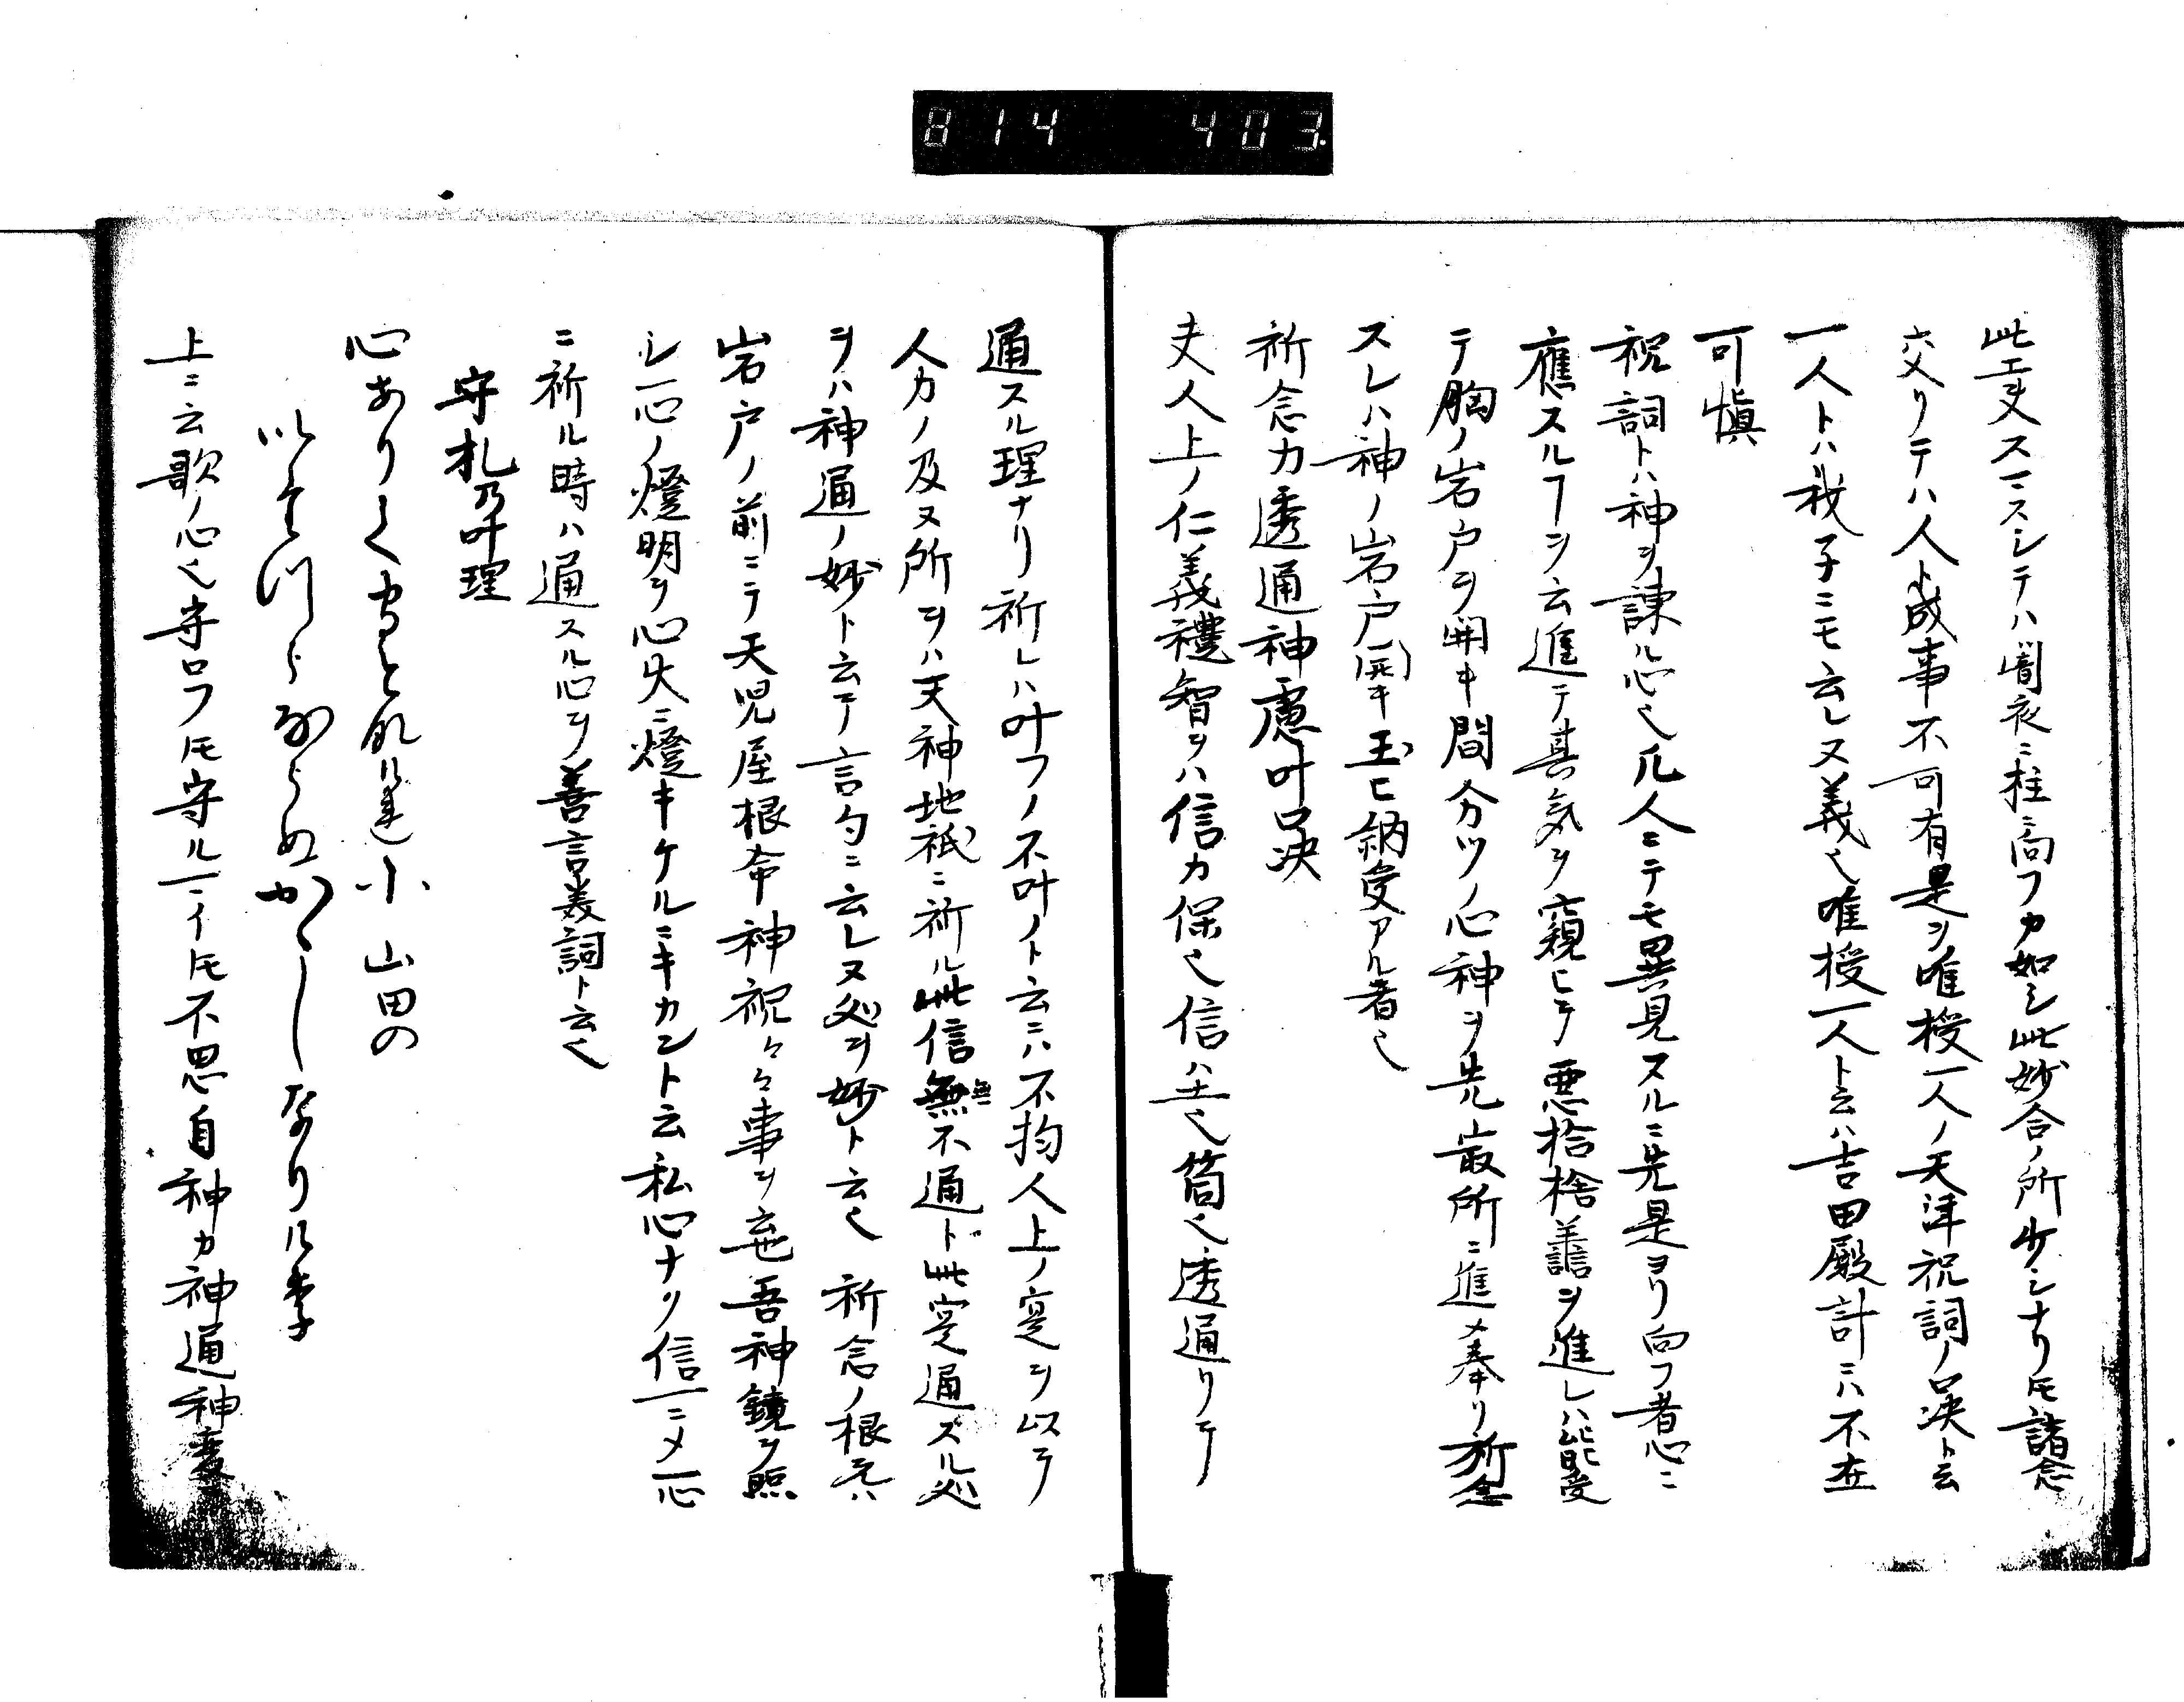 814 403.
此工夫スヿニスシテハ闇夜ニ柱ニ向フカ如シ此妙合ノ所少シナリ𪜈諸念
交リテハ人ト成事不可有是ヲ唯授一人ノ天津祝詞ノ口决ト云
一人トハ我子ニモ云レヌ義也唯授一人ト云ハ吉田殿計ニハ不在
可愼
祝詞トハ神ヲ諌ル心也凡人ニテモ異見スルニ先是ヨリ向フ者心ニ
應スルヿヲ云進テ其気ヲ窺ヒテ悪捨捨善ヲ進レハ能受
テ胸ノ岩戸ヲ開キ間分ツノ心神ヲ先最所ニ進メ奉リ祈念
スレハ神ノ岩戸開キ玉ヒ納受アル者也
祈念カ透通神慮叶口决
夫人上ノ仁義禮智ヲハ信カ保也信ハ土也筒也透通リテ
通スル理ナリ祈レハ叶フノ不叶ノト云ニハ不拘人上ノ寔ヲ以テ
人力ノ及ヌ所ヲハ天神地祇ニ祈ル此信無不通ト此寔通ズル処
ヲハ神通ノ妙ト云テ言句ニ云レヌ処ヲ妙ト云也 祈念ノ根元ハ
岩戸ノ前ニテ天児屋根命神祝々々事ヲ 吾神鏡ヲ照
シ一心ノ燈明ヲ心火ニ燈キケルニキカント云私心ナリ信一ニメ一心
ニ祈ル時ハ通スル心ヲ善言美詞ト云也
守札乃叶理
心ありて守となれ小山田の
いたつらならぬかゝしなりけり
上ニ云歌ノ心也守ロフ𪜈守ルヿニイ𪜈不思自神カ神通神変